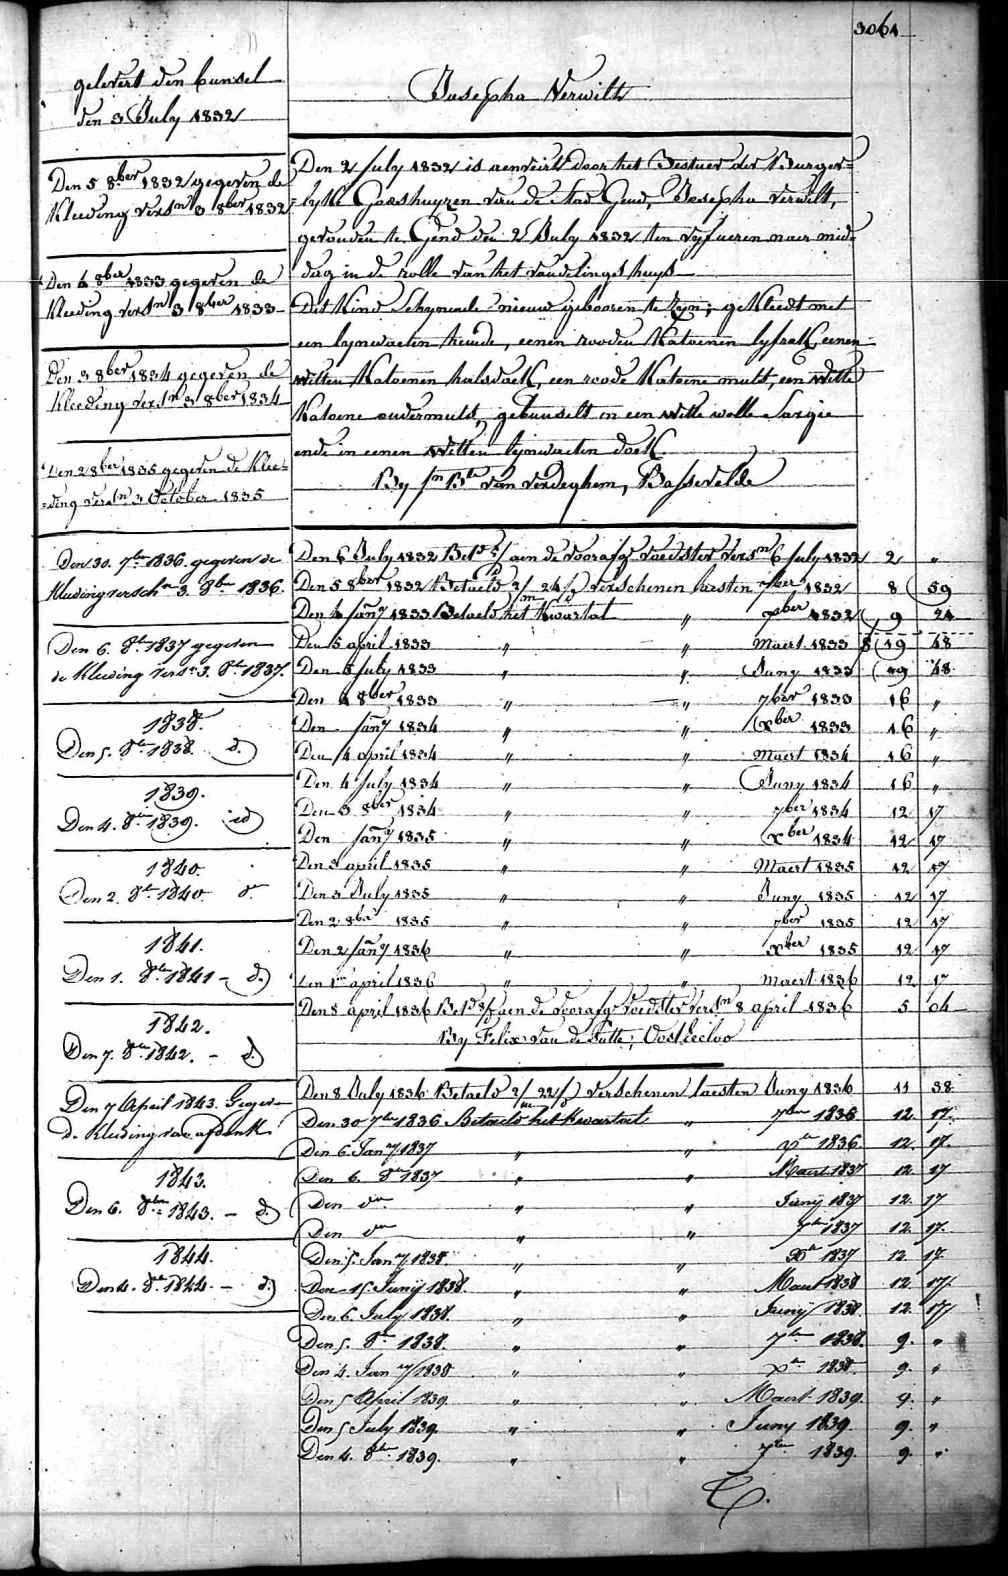 3064
gelevert den bunsel
den 3 July 1832
Den 5 8ber 1832 gegeven de
Kleeding versn 3 8ber 1832
Den 6 8ber 1833 gegeven de
Kleeding versn 3 8ber 1833
Den 3 8ber 1834 gegeven de
Kleeding versn 3 8ber 1834
Den 2 8ber 1835 gegeven de Klee=
=ding versn 3 October 1835
Den 30. 7ber 1836. gegeven de
Kleeding versch. 3. 8ber 1836.
Den 6. 8er 1837 gegeven
de Kleeding vers. 3. 8er 1837.
1838.
Den 5. 8er 1838. d.)
1839.
Den 4. 8er 1839. id)
1840.
Den 2. 8er 1840. do
1841.
Den 1. 8ber 1841 - d.)
1842.
Den 7. 8er 1842. - d.)
Den 7 April 1843. Gegev-
d. Kleeding van afdank
1843.
Den 6. 8ber 1843. - d.)
1844.
Den 4. 8er 1844. - d.)
Josepha Verwilt
Den 2 July 1832 is aenveird door het Bestuer der Burger=
=lyke Godshuyzen van de stad Gend, Josepha Verwilt,
gevonden te Gend den 2 July 1832 ten vyf ueren naer mid=
dag in de rolle van het vondelingshuys
Dit Kind schynende nieuw geboren te zyn; gekleedt met
een lynwaeten hemde, eenen rooden Katoenen lyfrak, eenen
witten Katoenen halsdoek, een roode Katoene muts, een witte
Katoene ondermuts, gebunselt in een witte wolle sargie
ende in eenen witten lynwaeten doek.
By Jn Bte van verdeghem, Bassevelde
Den 6 July 1832 Betd aen de voorafge voedster versn 6 July 1832 2 "
Den 5 8ber 1832 Betaeld 2/m 24/d verschenen laesten 7ber 1832 8 59
Den 4 Jany 1833 Betaeld het Kwartal " xber 1832 9 24
Den 5 april 1833 " " Maert 1833 19 48
Den 5 July 1833 " " Juny 1833 19 48
Den 4 8ber 1833 " " 7ber 1833 16 "
Den Jany 1834 " " xber 1833 16 "
Den 4 april 1834 " " Maert 1834 16 "
Den 4 July 1834 " " Juny 1834 16 "
Den 3 8ber 1834 " " 7ber 1834 12 17
Den Jany 1835 " " xber 1834 12 17
Den 3 april 1835 " " Maert 1835 12 17
Den 3 July 1835 " " Juny 1835 12 17
Den 2 8ber 1835 " " 7ber 1835 12 17
Den 2 Jany 1836 " " xber 1835 12 17
Den 1 april 1836 " " Maert 1836 12 17
Den 8 april 1836 Betd aen de voorafge voedster versn 8 april 1836 5 04
By Felix van de Putte, Oosteecloo
Den 8 July 1836 Betaeld 2/m 22/d verschenen laesten Juny 1836 11 38
Den 30 7ber 1836 Betaeld het Kwartael " 7ber 1836 12. 17.
Den 6 Jany 1837 " " xer 1836. 12. 17.
Den 6. 8er 1837 " " Maert 1837 12. 17
Den do " " Juny 1837 12. 17
Den do " " 7er 1837 12. 17.
Den 5. Jany 1838. " " Xer 1837 12. 17.
Den 15. Juny 1838. " " Maert 1838 12. 17.
Den 6. July 1838. " " Juny 1838. 12. 17
Den 5. 8er 1838. " " 7ber 1838. 9. "
Den 4. Jany 1838 " " xer 1838. 9. "
Den 5 April 1839. " " Maert 1839. 9. "
Den 5 July 1839. " " Juny 1839. 9. "
Den 4. 8ber 1839. " " 7ber 1839. 9. "